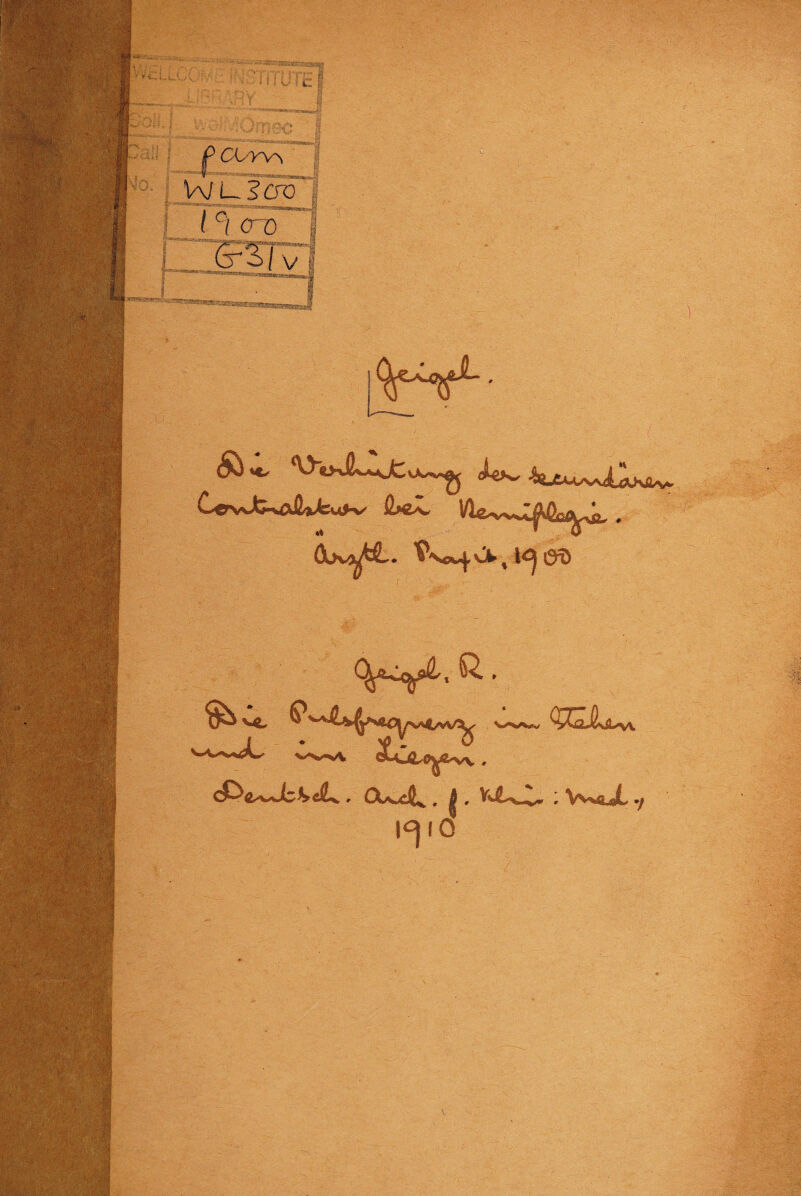 WELLCOME INSTITUTE
LIBRARY
Coll. welMOmec
Call pam
No. WL300
1900
G31v
Geigel.
Die Verhütung der secundären
Contraktur bei Hemiplegie.
Ärztl. Praxis, 1900
Geigel, R.
Die Pulsfrequenz im Stehen
und im Liegen.
Deutsch. Arch. f. klin. Med.,
1910